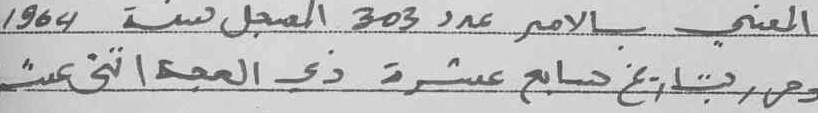 المعني بالامر عدد 303 المسجل لسنة 1964
وحرر بتاريخ سابع عشرة ذي الحجة اثنى عشر